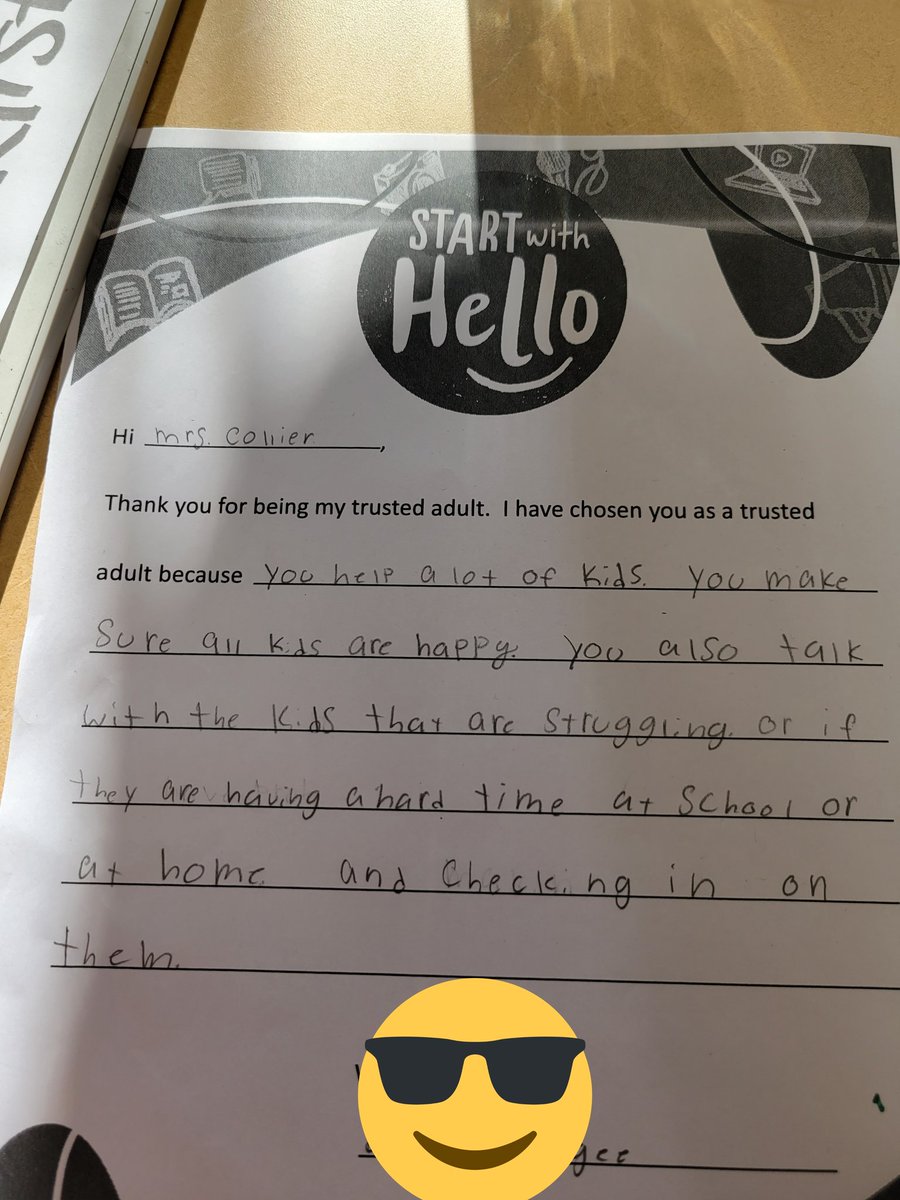 START with
Hello
Hi mrs. Collier,
Thank you for being my trusted adult. I have chosen you as a trusted
adult because you help a lot of kids. you make
Sure all kids are happy. you also talk
with the kids that are struggling. or if
they are having a hard time at school or
at home and checking in on
them.